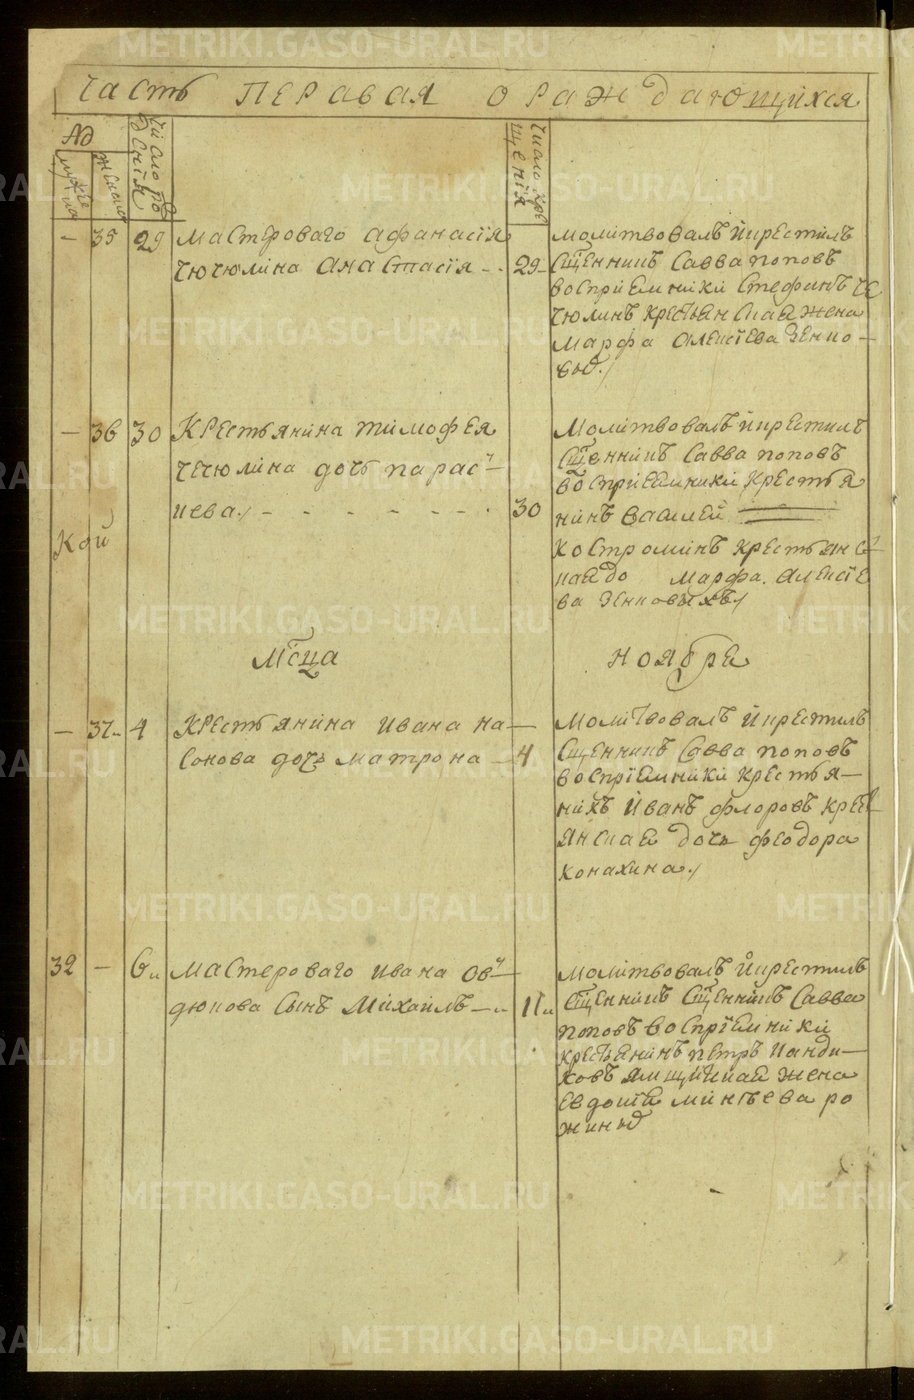 Часть перавая о раждающихся
мастероваго афанасiя
чючюлина анастасiя
молитвовалъ и крестилъ
сщенникъ Савва поповъ
воспрiемники
чюлинъ крестьянская жена
марфа алексiева зенко-
вы
35 29
29
36 30 Крестьянина тимофея
чечюлина дочь парас-
кева
30
молитвовалъ и крестилъ
сщенникъ Савва поповъ
воспрiемники крестья
нинъ василей
костроминъ крестьянс-
кая до марфа алексiе
ва зенковыхъ
мсца ноября
37 4 Крестьянина ивана на-
сонова дочь матрона
4
молитвовалъ и крестилъ
сщенникъ Савва поповъ
воспрiемники крестья-
нинъ иванъ флоровъ крест
янская дочь феодора
конахина
32 6 мастероваго ивана ов-
дюкова сынъ михаилъ
11
молитвовалъ и крестилъ
сщенникъ сщенникъ Савва
поповъ воспрiемники
крестьянинъ петръ канди-
ковъ ямщичкая жена
евдокiя ро
жины
METRIKI.GASO-URAL.RU